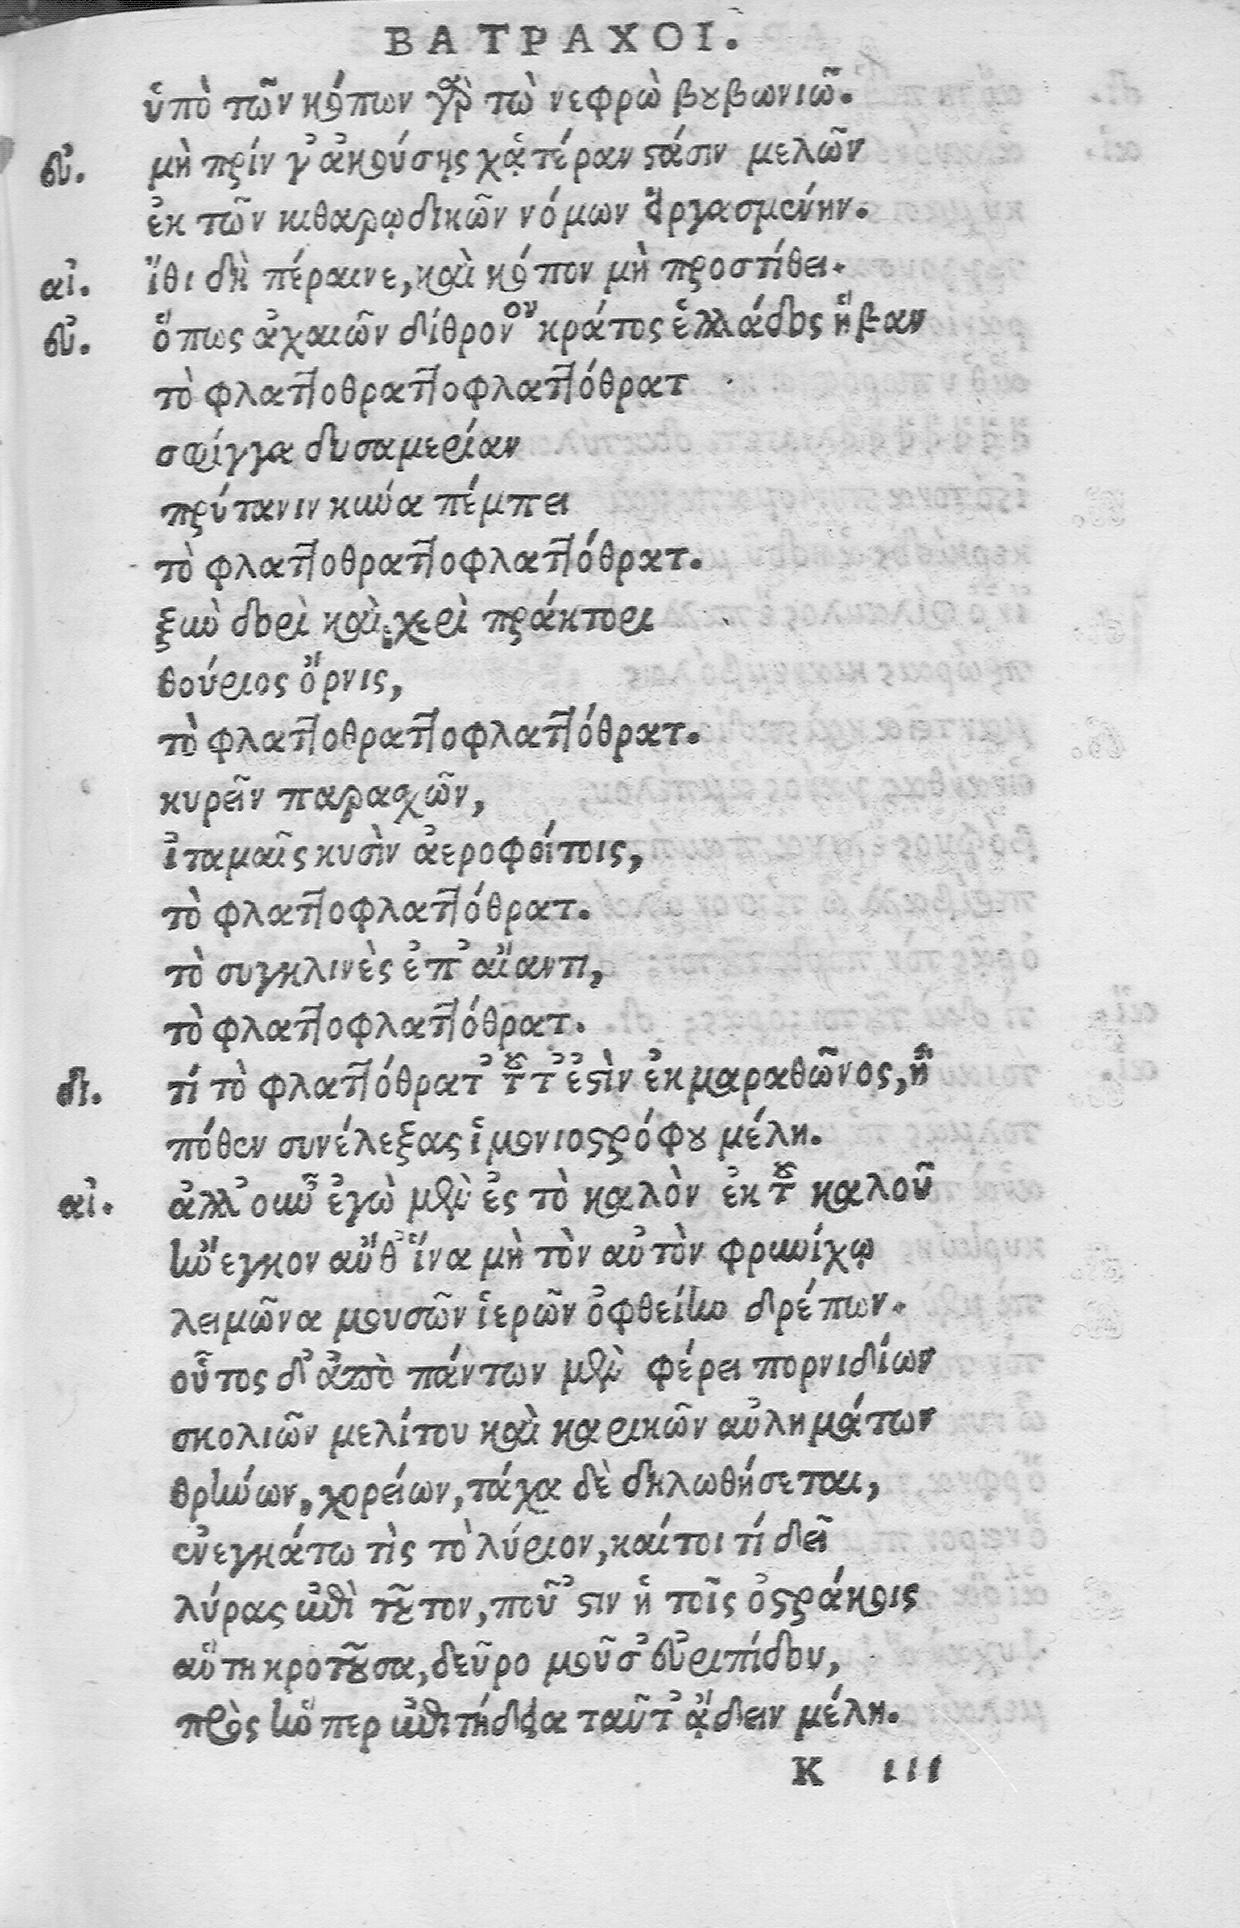 ΒΑΤΡΑΧΟΙ.
ὑπὸ τῶν κόπων γὰρ τὼ νεφρὼ βουβωνιῶ.
ευ. μὴ πρίν γ' ἀκούσῃς χἀτέραν στάσιν μελῶν
ἐκ τῶν κιθαρῳδικῶν νόμων ἐργασμένην.
αἰ. ἴθι δὴ πέραινε, καὶ κόπον μὴ προστίθει.
ευ. ὅπως ἀχαιῶν δίθρονον κράτος ἑλλάδος ἥβαν
τὸ φλαττοθραττοφλαττόθρατ
σφίγγα δυσαμερίαν
πρύτανιν κύνα πέμπει
τὸ φλαττοθραττοφλαττόθρατ.
ξὺν δορὶ καὶ χερὶ πράκτορι
θούριος ὄρνις,
τὸ φλαττοθραττοφλαττόθρατ.
κυρεῖν παρασχῶν,
ἰταμαῖς κυσὶν ἀεροφοίτοις,
τὸ φλαττοφλαττόθρατ.
τὸ συγκλινὲς ἐπ' αἴαντι,
τὸ φλαττοφλαττόθρατ.
δι. τί τὸ φλαττόθρατ' τοῦτ' ἐστὶν ἐκ μαραθῶνος, ἢ
πόθεν συνέλεξας ἱμονιοστρόφου μέλη.
αἰ. ἀλλ' οὖν ἐγὼ μὲν ἐς τὸ καλὸν ἐκ τοῦ καλοῦ
ἤνεγκον αὔθ' ἵνα μὴ τὸν αὐτὸν φρυνίχῳ
λειμῶνα μουσῶν ἱερῶν ὀφθείην δρέπων.
οὗτος δ' ἀπὸ πάντων μὲν φέρει πορνιδίων
σκολιῶν μελίτου καὶ καρικῶν αὐλημάτων
θρήνων, χορείων, τάχα δὲ δηλωθήσεται,
ἐνεγκάτω τὶς τὸ λύριον, καίτοι τί δεῖ
λύρας ἐπὶ τοῦτον, ποῦ 'στιν ἡ τοῖς ὀστράκοις
αὕτη κροτοῦσα, δεῦρο μοῦσ' εὐριπίδου,
πρὸς ἥνπερ ἐπιτήδεια ταῦτ' ᾄδειν μέλη.
Κ ιιι